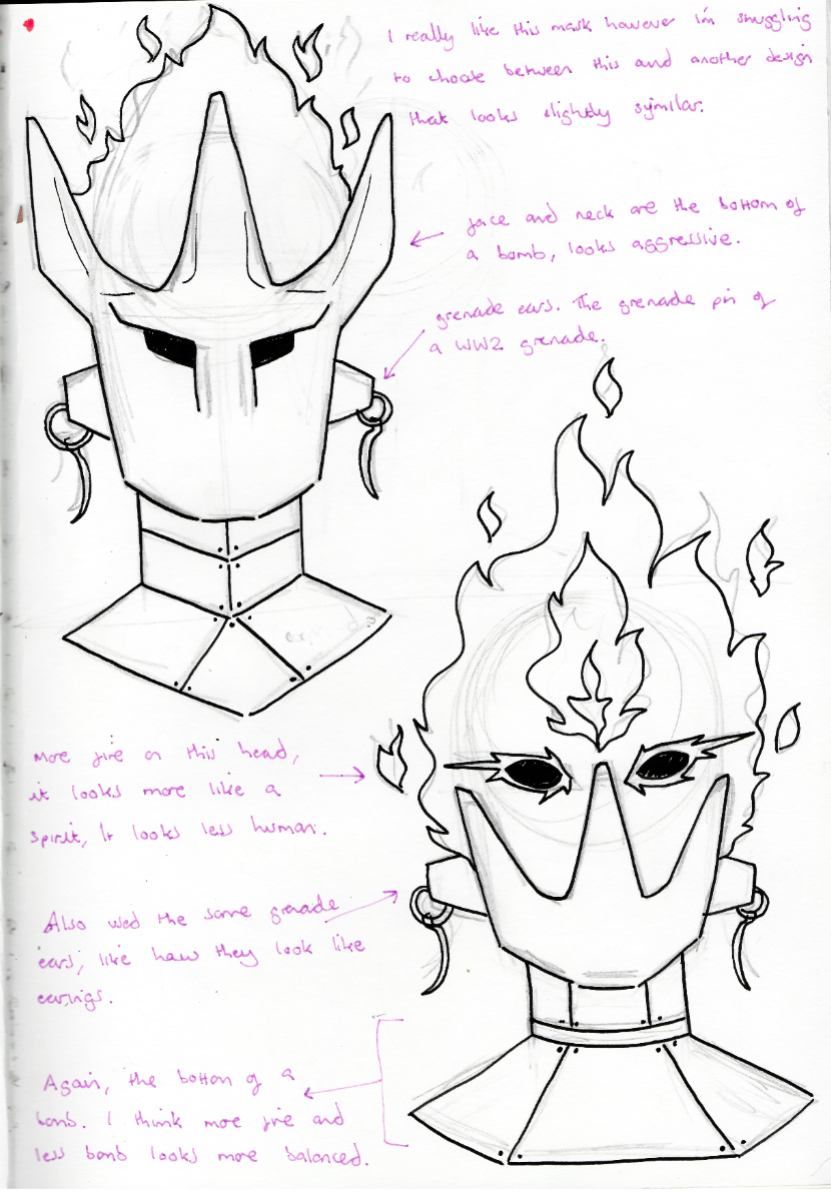 I really like this mask however im struggling
to choose between this and another design
that looks slightly symilar.
face and neck are the bottom of
a bomb, looks aggressive.
grenade ears. The grenade pin of
a WW2 grenade.
More fire on this head,
it looks more like a
spirit, It looks less human.
Also used the same grenade
ears, like how they look like
earings.
Again, the bottom of a
bomb. I think more fire and
less bomb looks more balanced.